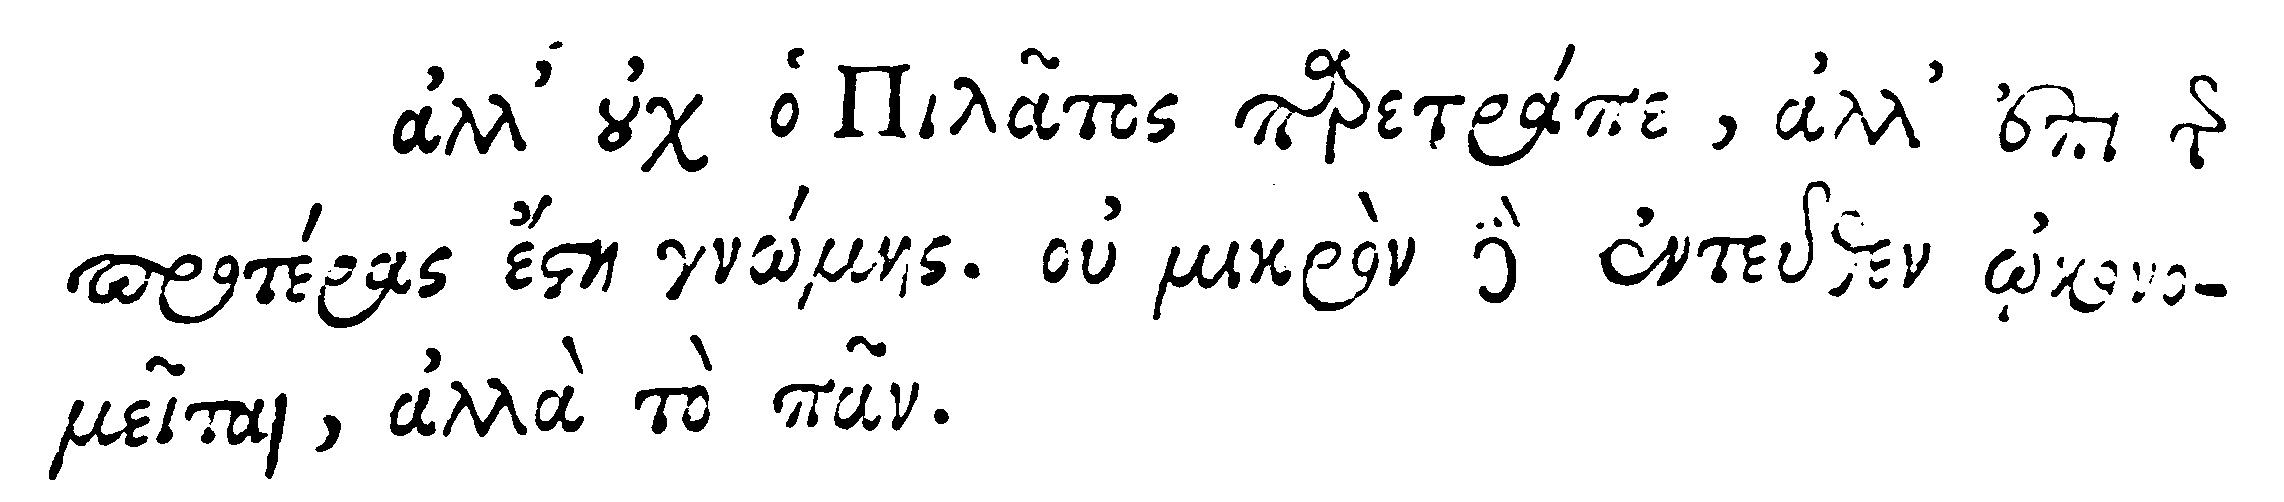 ἀλλ' οὐχ ὁ Πιλᾶτος παρετράπε, ἀλλ' ἐπὶ τ̃
προτέρας ἔστη γνώμης. οὐ μικρὸν γὰρ ἐντεῦθεν ᾠκονο-
μεῖται, ἀλλὰ τὸ πᾶν.